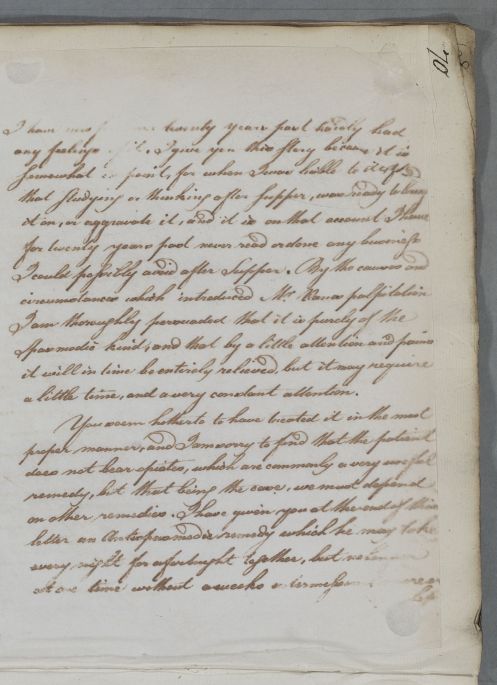 70
I have now for some twenty years past hardly had
any feelings of it. I give you this story because it is
somewhat in point, for when I was liable to it I found
that studying or thinking after supper, was ready to bring
it on, or aggravate it, and it is on that account I have
for twenty years past never read or done any business
I could possibly avoid after Supper. By the causes and
circumstances which introduced Mr palpitation
I am thoroughly persuaded that it is purely of the
Spasmodic kind, and that by a little attention and pains
it will in time be entirely relieved, but it may require
a little time, and a very constant attention.
You seem hitherto to have treated it in the most
proper manner, and I am sorry to find that the patient
does not bear opiates, which are commonly a very useful
remedy, but that being the case, we must depend
on other remedies. I have given you at the end of this
letter an Antispasmodic remedy which he may take
every night for a fortnight together, but no longer
at one time without a weeks intermission